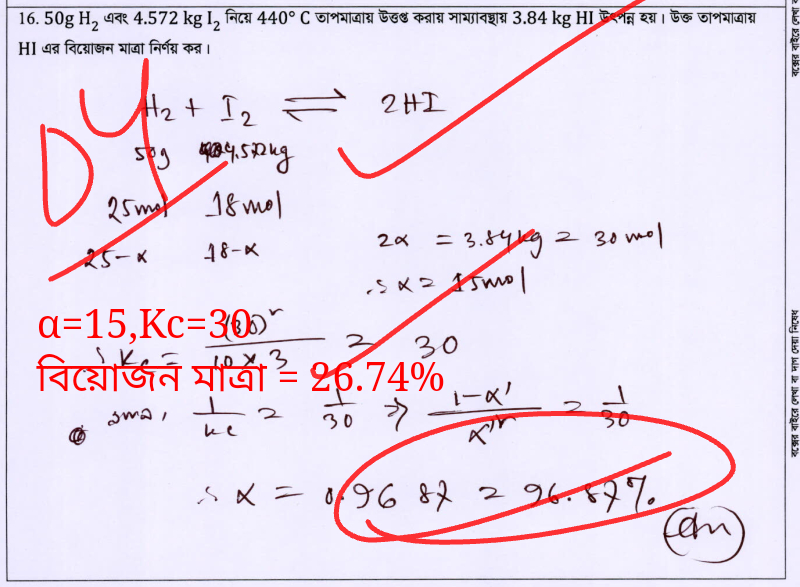 16. 50g H₂ এবং 4.572 kg I₂ নিয়ে 440° C তাপমাত্রায় উত্তপ্ত করায় সাম্যাবস্থায় 3.84 kg HI উৎপন্ন হয়। উক্ত তাপমাত্রায়
HI এর বিয়োজন মাত্রা নির্ণয় কর।
H₂ + I₂ ⇌ 2HI
50g 4.572kg
25mol 18mol
25-α 18-α
2α = 3.84kg = 30 mol
∴ α = 15mol
α=15,Kc=30
∴ Kc = (30)² / 10 × 3 = 30
বিয়োজন মাত্রা = 26.74%
1/Kc = 1/30 ⇒ 1-α' / α'² = 1/30
∴ α = 0.9687 = 96.87%
বক্সের বাইরে লেখা বা দাগ দেয়া নিষেধ